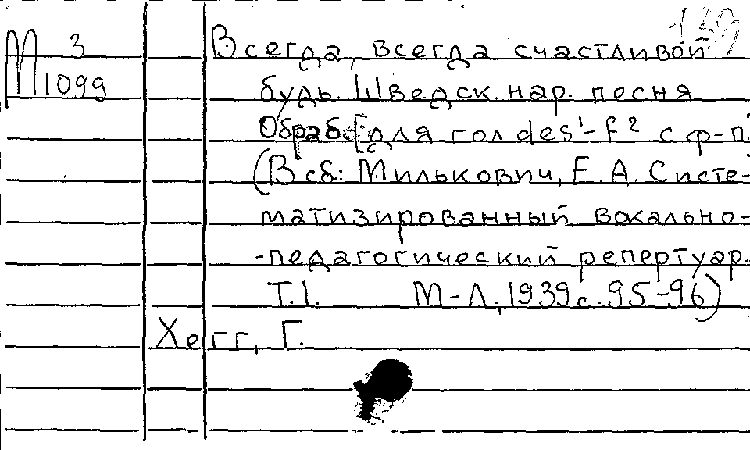 139
М 3 Всегда, всегда счастливой
1099 будь. Шведск. нар. песня
Обраб. [для гол des¹-f² с ф-п]
(В сб.: Милькович, Е. А. Систе-
матизированный вокально-
-педагогический репертуар.
Т.1. М-Л., 1939 с. 95-96)
Хегг, Г.